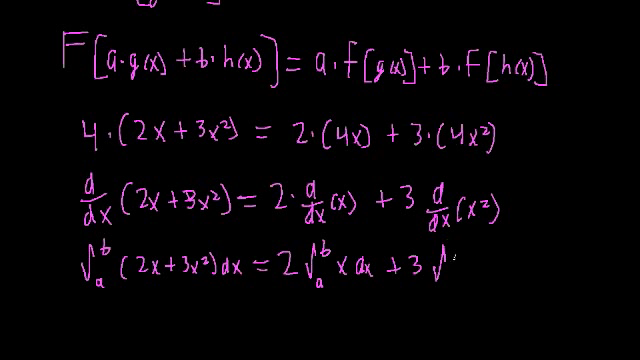 F[a·g(x) + b·h(x)] = a·F[g(x)] + b·F[h(x)]
4·(2x + 3x²) = 2·(4x) + 3·(4x²)
d/dx (2x + 3x²) = 2·d/dx (x) + 3 d/dx (x²)
∫_a^b (2x + 3x²) dx = 2 ∫_a^b x dx + 3 ∫